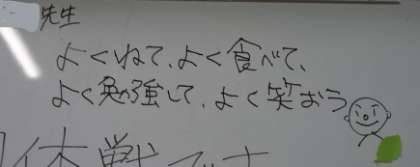 先生
よくねて、よく食べて、
よく勉強して、よく笑おう